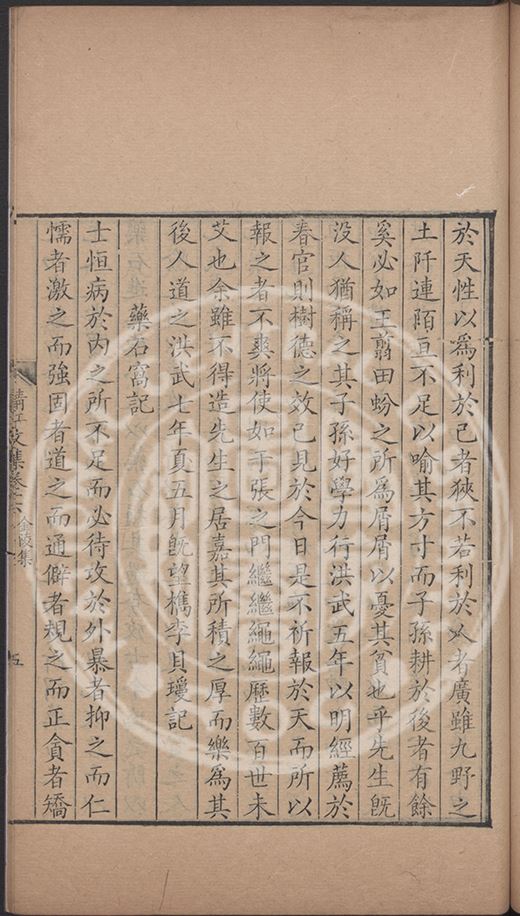 於天性以爲利於己者狹不若利於人者廣雖九野之
土阡連陌亘不足以喻其方寸而子孫耕於後者有餘
奚必如王翦田蚡之所爲屑屑以憂其貧也乎先生旣
没人猶稱之其子孫好學力行洪武五年以明經薦於
春官則樹德之效已見於今日是不祈報於天而所以
報之者不爽將使如于張之門繼繼繩繩歷數百世未
艾也余雖不得造先生之居嘉其所積之厚而樂爲其
後人道之洪武七年夏五月旣望檇李貝瓊記
藥石窩記
士恒病於内之所不足而必待攻於外暴者抑之而仁
懦者激之而強固者道之而通僻者規之而正貪者矯
清江文集卷之六 金陵集
五